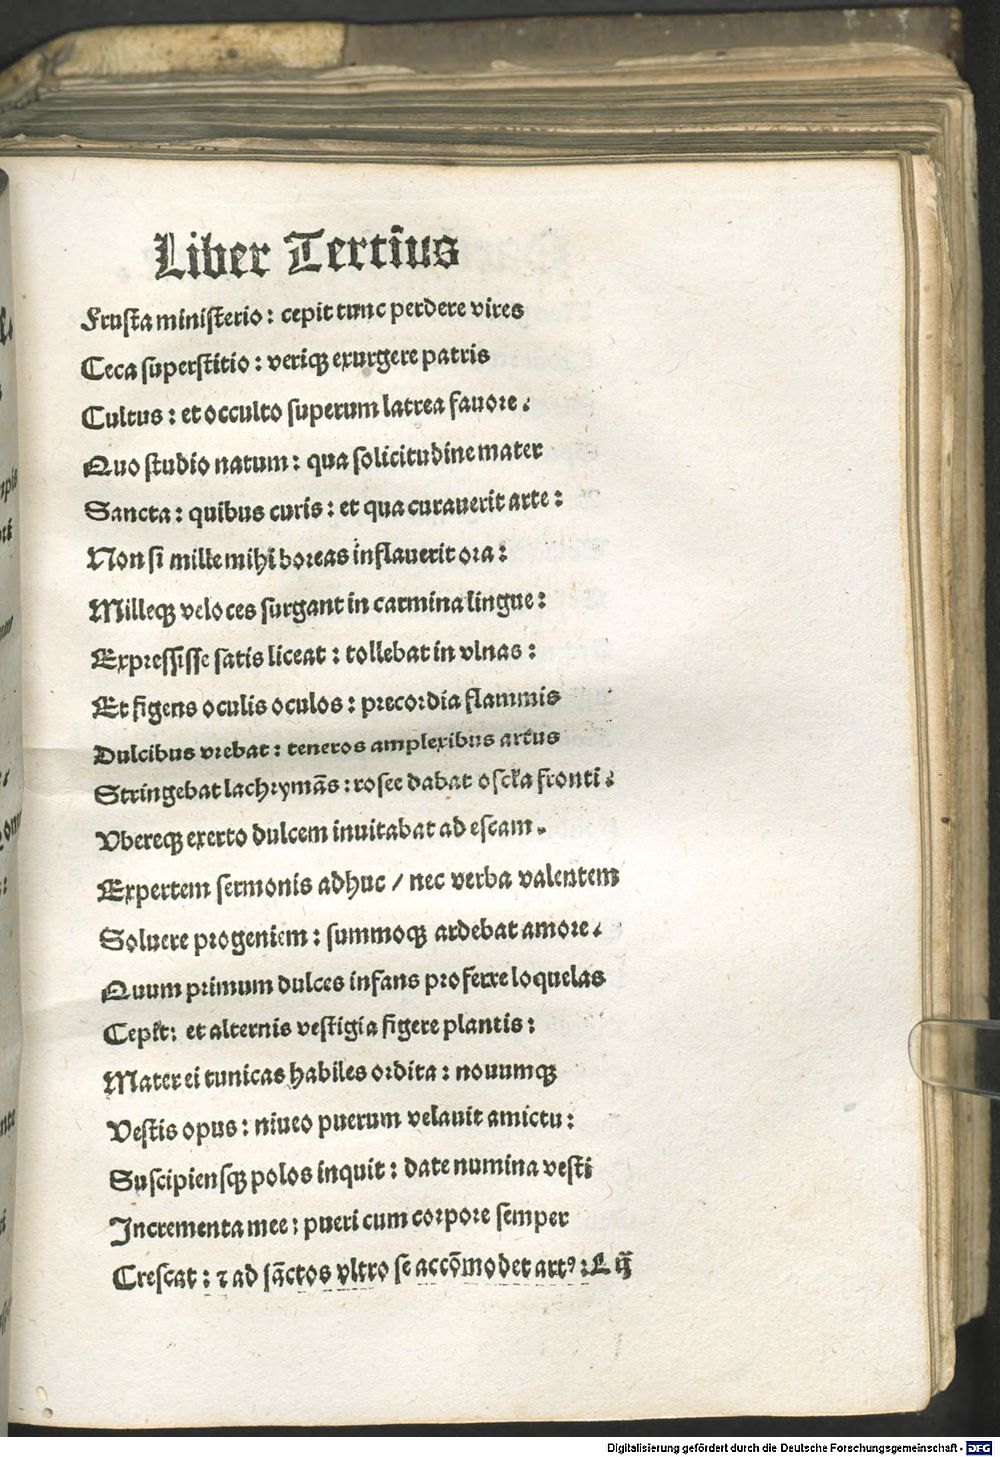 Liber Tertius
Frusta ministerio: cepit tunc perdere vires
Ceca superstitio: veriqꝫ exurgere patris
Cultus: et occulto superum latrea fauore.
Quo studio natum: qua solicitudine mater
Sancta: quibus curis: et qua curauerit arte:
Non si mille mihi boreas inflauerit ora:
Milleqꝫ veloces surgant in carmina lingue:
Expressisse satis liceat: tollebat in vlnas:
Et figens oculis oculos: precordia flammis
Dulcibus vrebat: teneros amplexibus artus
Stringebat lachrymãs: rosee dabat oscla fronti:
Vbereqꝫ exerto dulcem inuitabat ad escam.
Expertem sermonis adhuc / nec verba valentem
Soluere progeniem: summoqꝫ ardebat amore.
Quum primum dulces infans proferre loquelas
Cepit: et alternis vestigia figere plantis:
Mater ei tunicas habiles ordita: nouumqꝫ
Vestis opus: niueo puerum velauit amictu:
Suscipiensqꝫ polos inquit: date numina vesti
Incrementa mee: pueri cum corpore semper
Crescat: ⁊ ad sãctos vltro se accõmodet artꝰ: L
Digitalisierung gefördert durch die Deutsche Forschungsgemeinschaft - DFG